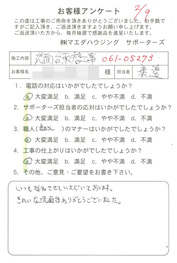 お客様アンケート
2/9
この度は工事のご用命を頂きありがとうございました。お手数で
すがご記入頂き、ご返送頂きますようお願い申し上げます。
ご返送頂いた方から、毎月抽選で感謝品を進呈しております。
㈱マエダハウジング サポーターズ
施工内容 061-05293
お客様名 様 担当者
1. 電話の対応はいかがでしたでしょうか?
a 大変満足 b. 満足 c. やや不満 d. 不満
2. サポーターズ担当者の応対はいかがでしたでしょうか?
a 大変満足 b. 満足 c. やや不満 d. 不満
3. 職人( )のマナーはいかがでしたでしょうか?
a 大変満足 b. 満足 c. やや不満 d. 不満
4. 工事の仕上がりはいかがでしたでしょうか?
a 大変満足 b. 満足 c. やや不満 d. 不満
5. その他、ご意見・ご要望をお書き下さい。
いつもお世話になっております。
ありがとうございました。